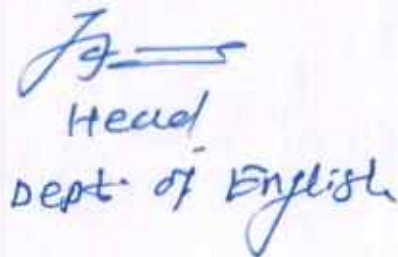 Head
Dept. of English